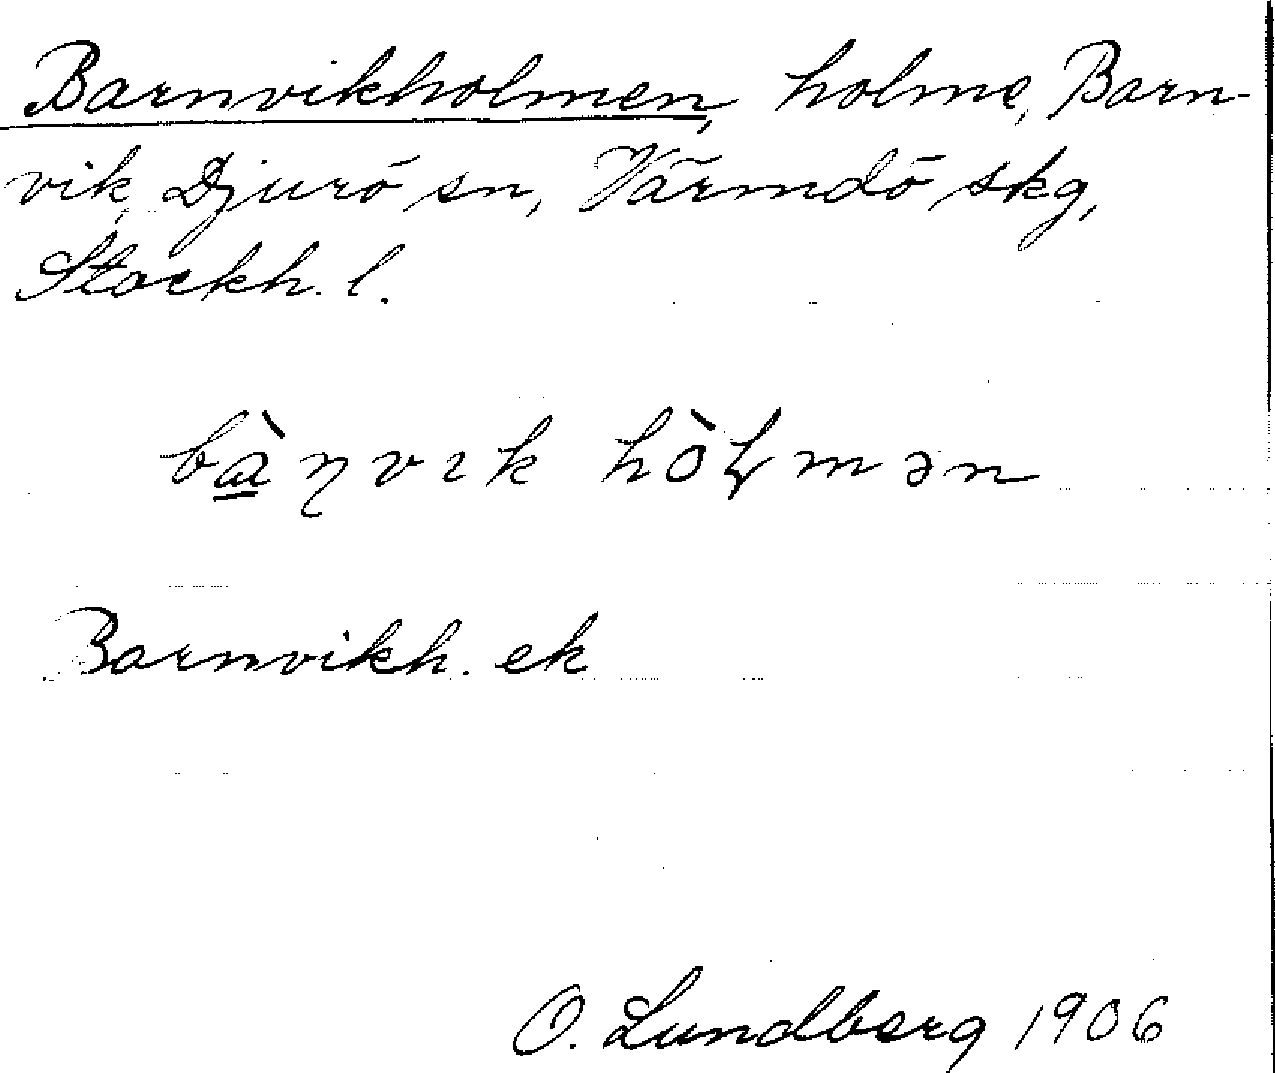 Barnvikholmen, holme, Barn-
vik, Djurö sn, Värmdö skg,
Stockh. l.
bà̱ɳvɪk hòɽmən
Barnvikh. ek
O. Lundberg 1906